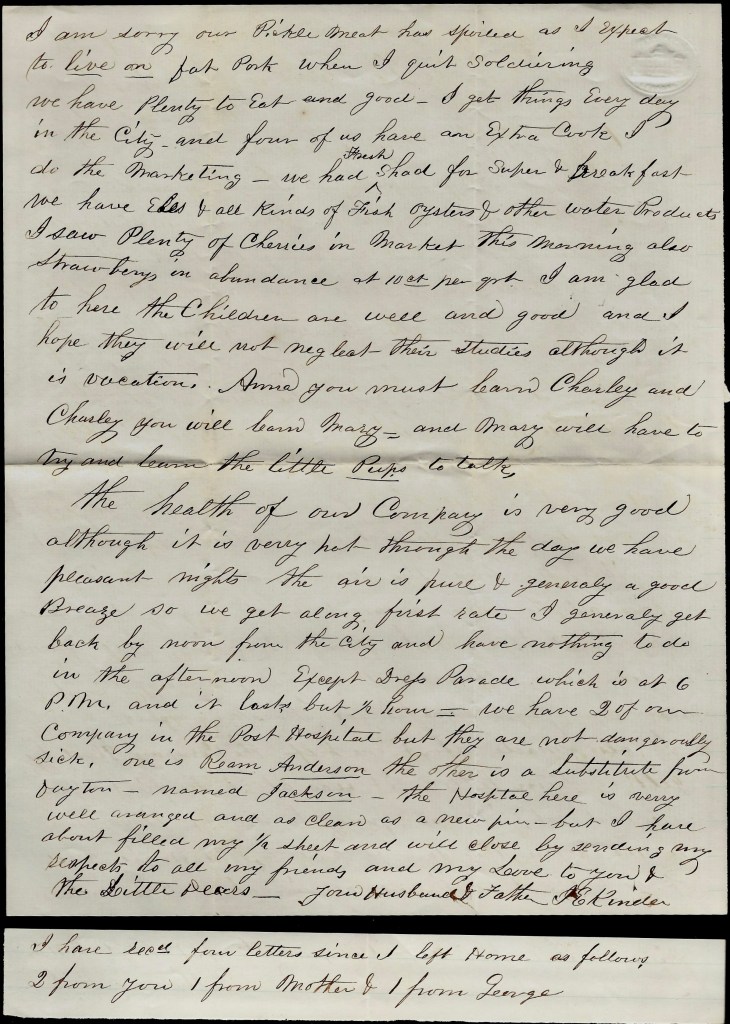 I am sorry our Pickle Meat has spoiled as I Expect
to live on fat Pork when I quit Soldiering
we have Plenty to Eat and good - I get things Every day
in the City - and four of us have an Extra Cook I
do the Marketing - we had Fresh Shad for Super & breakfast
we have Eles & all Kinds of Fish Oysters & other water Products
I saw Plenty of Cherries in Market this Morning also
Strawberys in abundance at 10ct per qrt. I am glad
to here the Children are well and good and I
hope they will not neglect their studies although it
is vacation. Anna you must learn Charley and
Charley you will learn Mary - and Mary will have to
try and learn the little Pups to talk,
the health of our Company is very good
although it is verry hot through the day we have
pleasant nights the air is pure & generaly a good
Breaze so we get along first rate I generaly get
back by noon from the City and have nothing to do
in the afternoon Except Dress Parade which is at 6
P.M. and it lasts but ½ hour = we have 2 of our
Company in the Post Hospital but they are not dangerously
sick, one is Ream Anderson the other is a Substitute from
Dayton - named Jackson - the Hospital here is verry
well aranged and as clean as a new pin - but I have
about filled my ½ sheet and will close by sending my
respects to all my friends and my Love to you &
the Little Dears - Your Husband & Father I E Kinder
I have recd four letters since I left Home as follows,
2 from you 1 from Mother & 1 from George